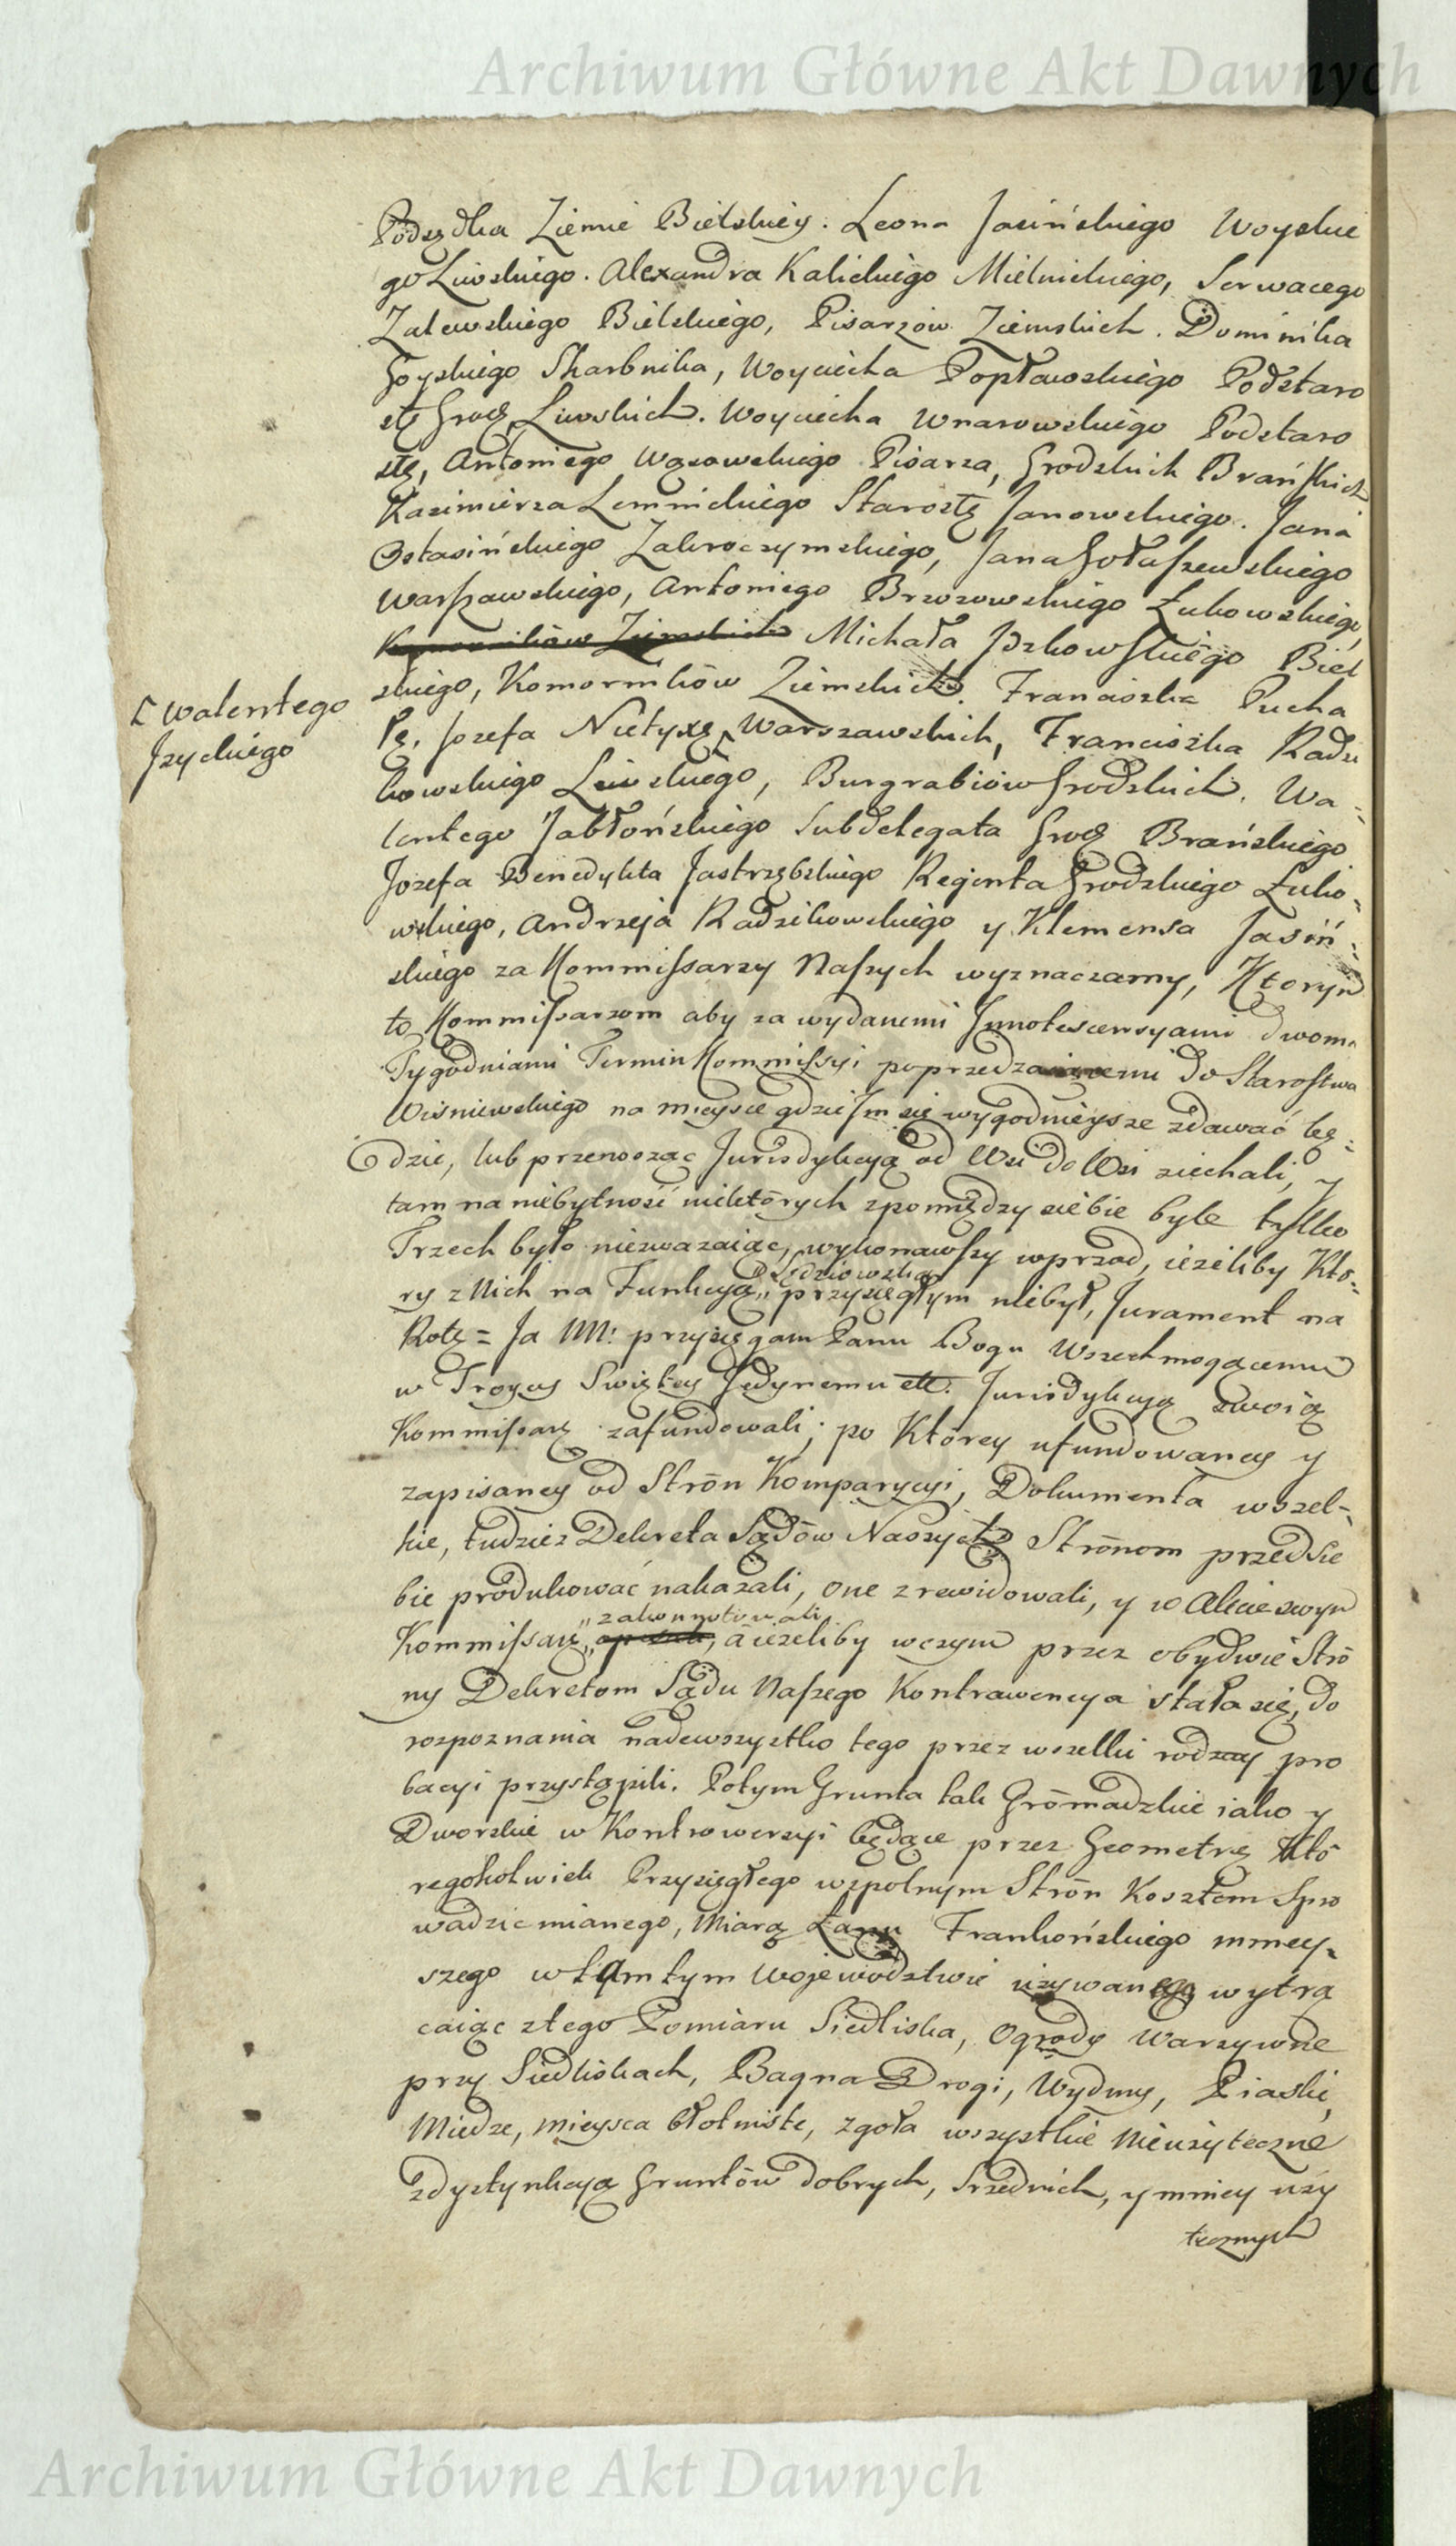 Archiwum Główne Akt Dawnych
Podsędka Ziemie Bielskiey. Leona Jasińskiego Woyskie
go Liwskiego. Alexandra Kalickiego Mielnickiego, Serwacego
Zalewskiego Bielskiego, Pisarzów Ziemskich. Dominika
Goyskiego Skarbnika, Woyciecha Popławskiego Podstaro
stę Grodz Liwskich. Woyciecha Wnarowskiego Podstaro
stę, Antoniego Wąsowskiego Pisarza, Grodzkich Brańskich
Kazimierza Lemnickiego Starostę Janowskiego. Jana
Ostasińskiego Zakroczymskiego, Jana Gołaszewskiego
Warszawskiego, Antoniego Brzozowskiego Łukowskiego,
Komorników Ziemskich Michała Jzkowskiego Biel
skiego, Komorników Ziemskich. Franciszka Pucha
łę, Jozefa Nietyxę Warszawskich, Franciszka Radzi
kowskiego Liwskiego, Burgrabiów Grodzkich. Wa-
lentego Jabłońskiego Subdelegata Grodz Brańskiego
Jozefa Benedykta Jastrzębskiego Regenta Grodzkiego Łuko-
wskiego, Andrzeja Radzikowskiego y Klemensa Jasiń-
skiego za Kommissarzy Naszych wyznaczamy, Którym
to Kommissarzom aby za wydanemi Jnnotescencyami dwoma
Tygodniami Termin Kommissyi poprzedzaiącemi do Starostwa
Wisniewskiego na mieysce gdzie Jm się wygodnieysze zdawać bę-
dzie, lub przenosząc Jurisdykcyą od Wsi do Wsi ziechali, y
tam na niebytność niektórych zpomiędzy siebie byle tylko
Trzech było niezwazaiąc, wykonawszy wprzod, iezeliby Któ-
ry z Nich na Funkcyą „Sędziowską„ przysięgłym niebył, Jurament na
Rotę = Ja NN: przysięgam Panu Bogu Wszechmogącemu
w Troycy Swiętey Jedynemu etc. Jurisdykcyą swoią
Kommissarz zafundowali; po Którey ufundowaney y
zapisaney od Strón Komparycyi, Dokumenta wszel-
kie, tudziez Dekreta Sądów Naszych Strónom przed sie
bie produkować nakazali, one zrewidowali, y w Akcie swym
Kommissar „zakonnotowali„, a iezeliby w czym przez obydwie Stró
ny Dekretom Sądu Naszego Kontrawencya stała się, do
rozpoznania nadewszystko tego przez wszelki rodzay pro
bacyi przystąpili. Potym Grunta tak Grómadzkie iako y
Dworskie w Kontrowersyi będące przez Geometrę Któ
regokolwiek Przysięgłego wspolnym Strón Kosztem Spro
wadzic mianego, Miarą Łanu Frankońskiego mniey-
szego w tamtym Wojewodztwie uzywanego wytrą
caiąc z tego Pomiaru Siedliska, Ogrody Warzywne
przy Siedliskach, Bagna Drogi, Wydmy, Piaski,
Miedze, mieysca błotniste, zgoła wszystkie nieuzyteczne
z dystynkcyą Gruntów dobrych, srzednich, y mniey uzy
tecznych
[ Walentego
Jzyckiego
Archiwum Główne Akt Dawnych